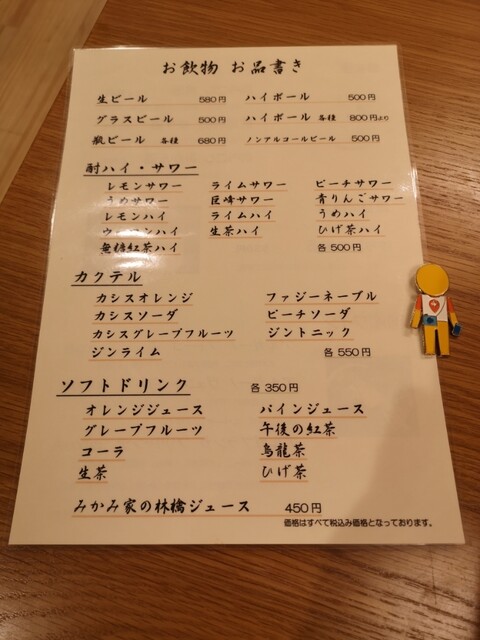 お飲物 お品書き
生ビール 580円 ハイボール 500円
グラスビール 500円 ハイボール 各種 800円より
瓶ビール 各種 680円 ノンアルコールビール 500円
酎ハイ・サワー
レモンサワー ライムサワー ピーチサワー
うめサワー 巨峰サワー 青りんごサワー
レモンハイ ライムハイ うめハイ
ウーロンハイ 生茶ハイ ひげ茶ハイ
無糖紅茶ハイ 各500円
カクテル
カシスオレンジ ファジーネーブル
カシスソーダ ピーチソーダ
カシスグレープフルーツ ジントニック
ジンライム 各550円
ソフトドリンク 各350円
オレンジジュース パインジュース
グレープフルーツ 午後の紅茶
コーラ 烏龍茶
生茶 ひげ茶
みかみ家の林檎ジュース 450円
価格はすべて税込み価格となっております。